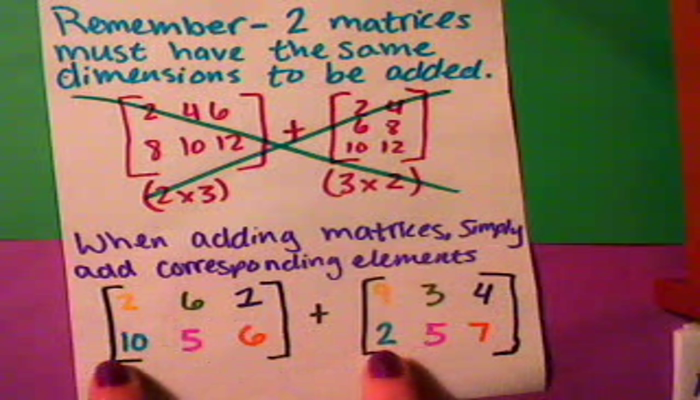 Remember - 2 matrices
must have the same
dimensions to be added.
[2 4 6] + [2 4]
[8 10 12] [6 8]
[10 12]
(2x3) (3x2)
When adding matrices, simply
add corresponding elements
[2 6 2] + [9 3 4]
[10 5 6] [2 5 7]